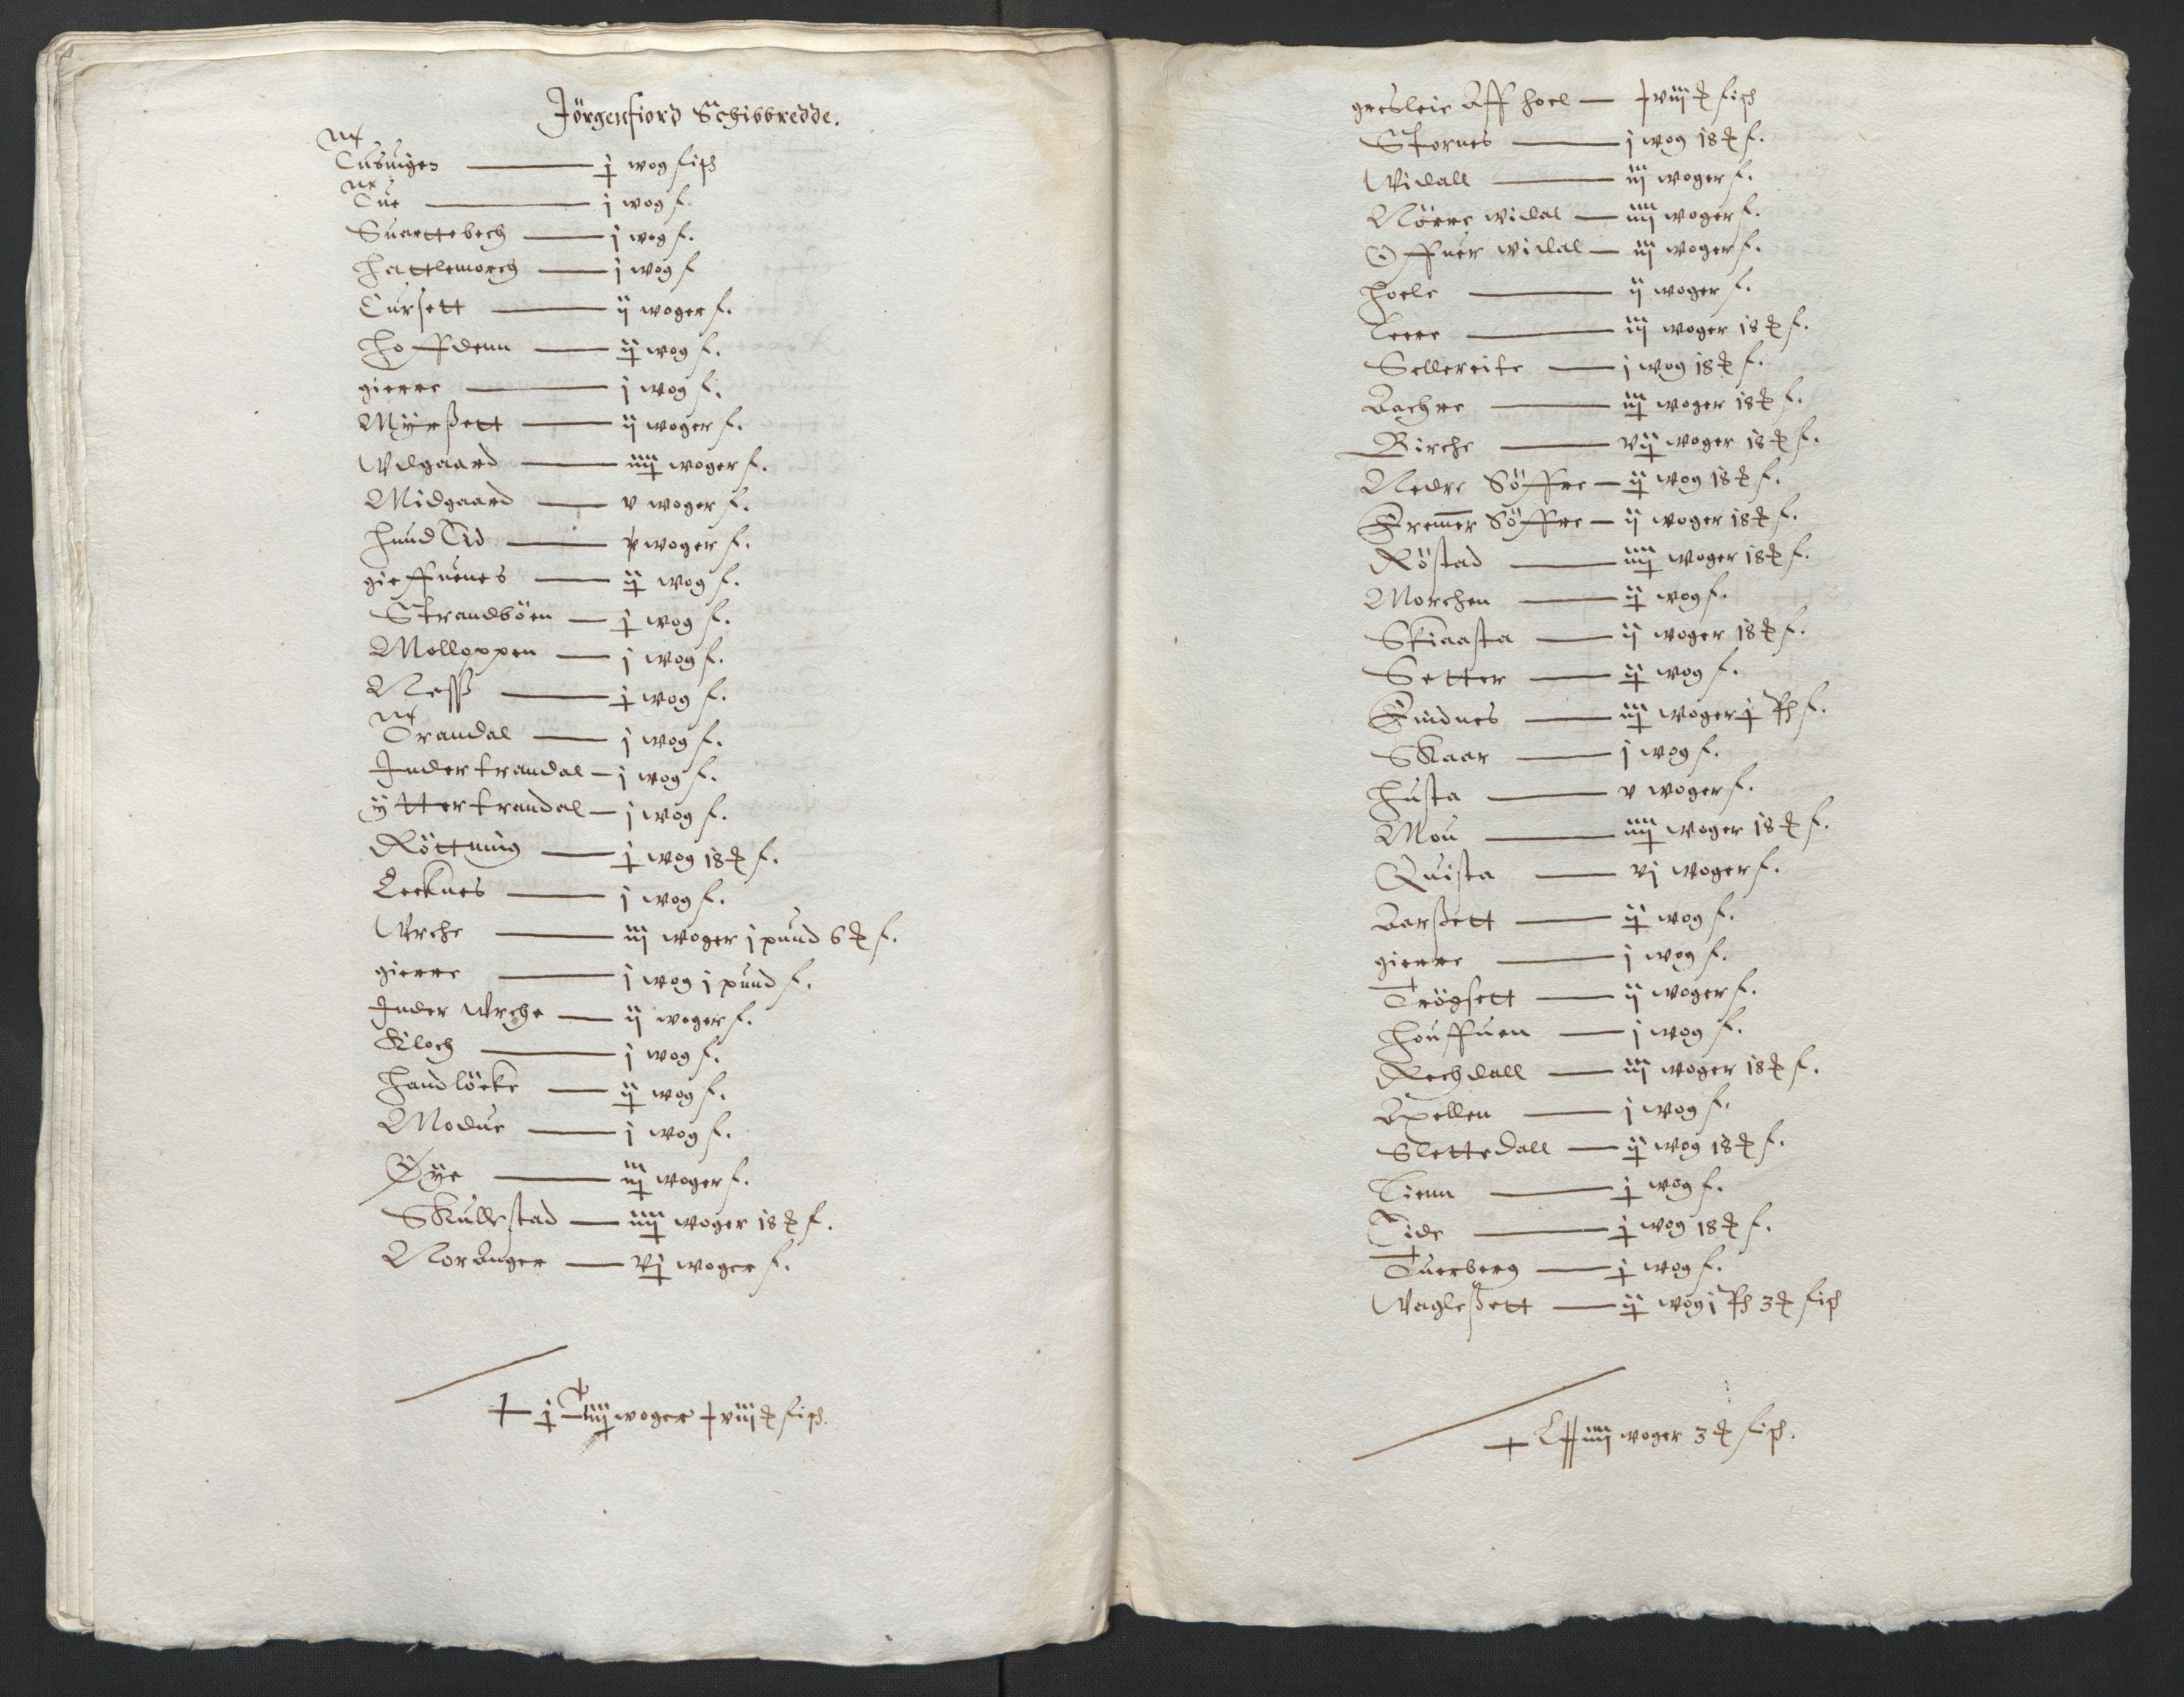 Jörgenfiord Schibbredde.
Nt
Tusuigen — j wog fisch
Nt
Tue — j wog f.
Suarttebech — j wog f.
Hattlemarch — j wog f
Tursett — ij woger f.
Hoffdenn — ij wog f.
gierre — j wog f.
Myrßett — ij woger f.
Wdgaard — iiij woger f.
Midgaard — v woger f.
Hund — v woger f.
gieffuenes — ij wog f.
Strandböen — j wog f.
Molloppen — j wog f.
Neß — j wog f.
Nt
Trandal — j wog f.
Inder trandal — j wog f.
ÿtter trandal — j wog f.
Röttuing — j wog 18 ₰ f.
Lecknes — j wog f.
Wrche — iij woger j pund 6 ₰ f.
gierre — j wog j pund f.
Inder Wrche — ij woger f.
Kloch — j wog f.
Handlöcke — ij wog f.
Modue — j wog f.
Øÿe — iij woger f.
Skullestad — iiij woger 18 ₰ f.
Noranger — vj woger f.
iiij woger viij ₰ fisch.
gresleie Aff Hoel — viij ₰ fisch
Stornes — j wog 18 ₰ f.
Widall — iij woger f.
Nörre widal — iiij woger f.
Offuer widal — iij woger f.
Hoele — ij woger f.
Leere — iij woger 18 ₰ f.
Sellereite — j wog 18 ₰ f.
Aachre — iij woger 18 ₰ f.
Birche — vij woger 18 ₰ f.
Nedre Söffre — ij wog 18 ₰ f.
Fremer Söffre — ij woger 18 ₰ f.
Röstad — iiij woger 18 ₰ f.
Morchen — ij wog f.
Skiaasta — ij woger 18 ₰ f.
Setter — ij wog f.
Findnes — iij woger j Pd f.
Skaar — j wog f.
Husta — v woger f.
Mou — iiij woger 18 ₰ f.
Quista — vj woger f.
Aarßett — ij wog f.
gierre — j wog f.
Trögsett — ij woger f.
Houffuen — j wog f.
Rechdall — iij woger 18 ₰ f.
Apellen — j wog f.
Slettedall — ij wog 18 ₰ f.
Tienn — j wog f.
Tide — j wog 18 ₰ f.
Tuerberg — j wog f.
Wagleßett — ij wog j Pd 3 ₰ fisch
iiij woger 3 ₰ fisch.